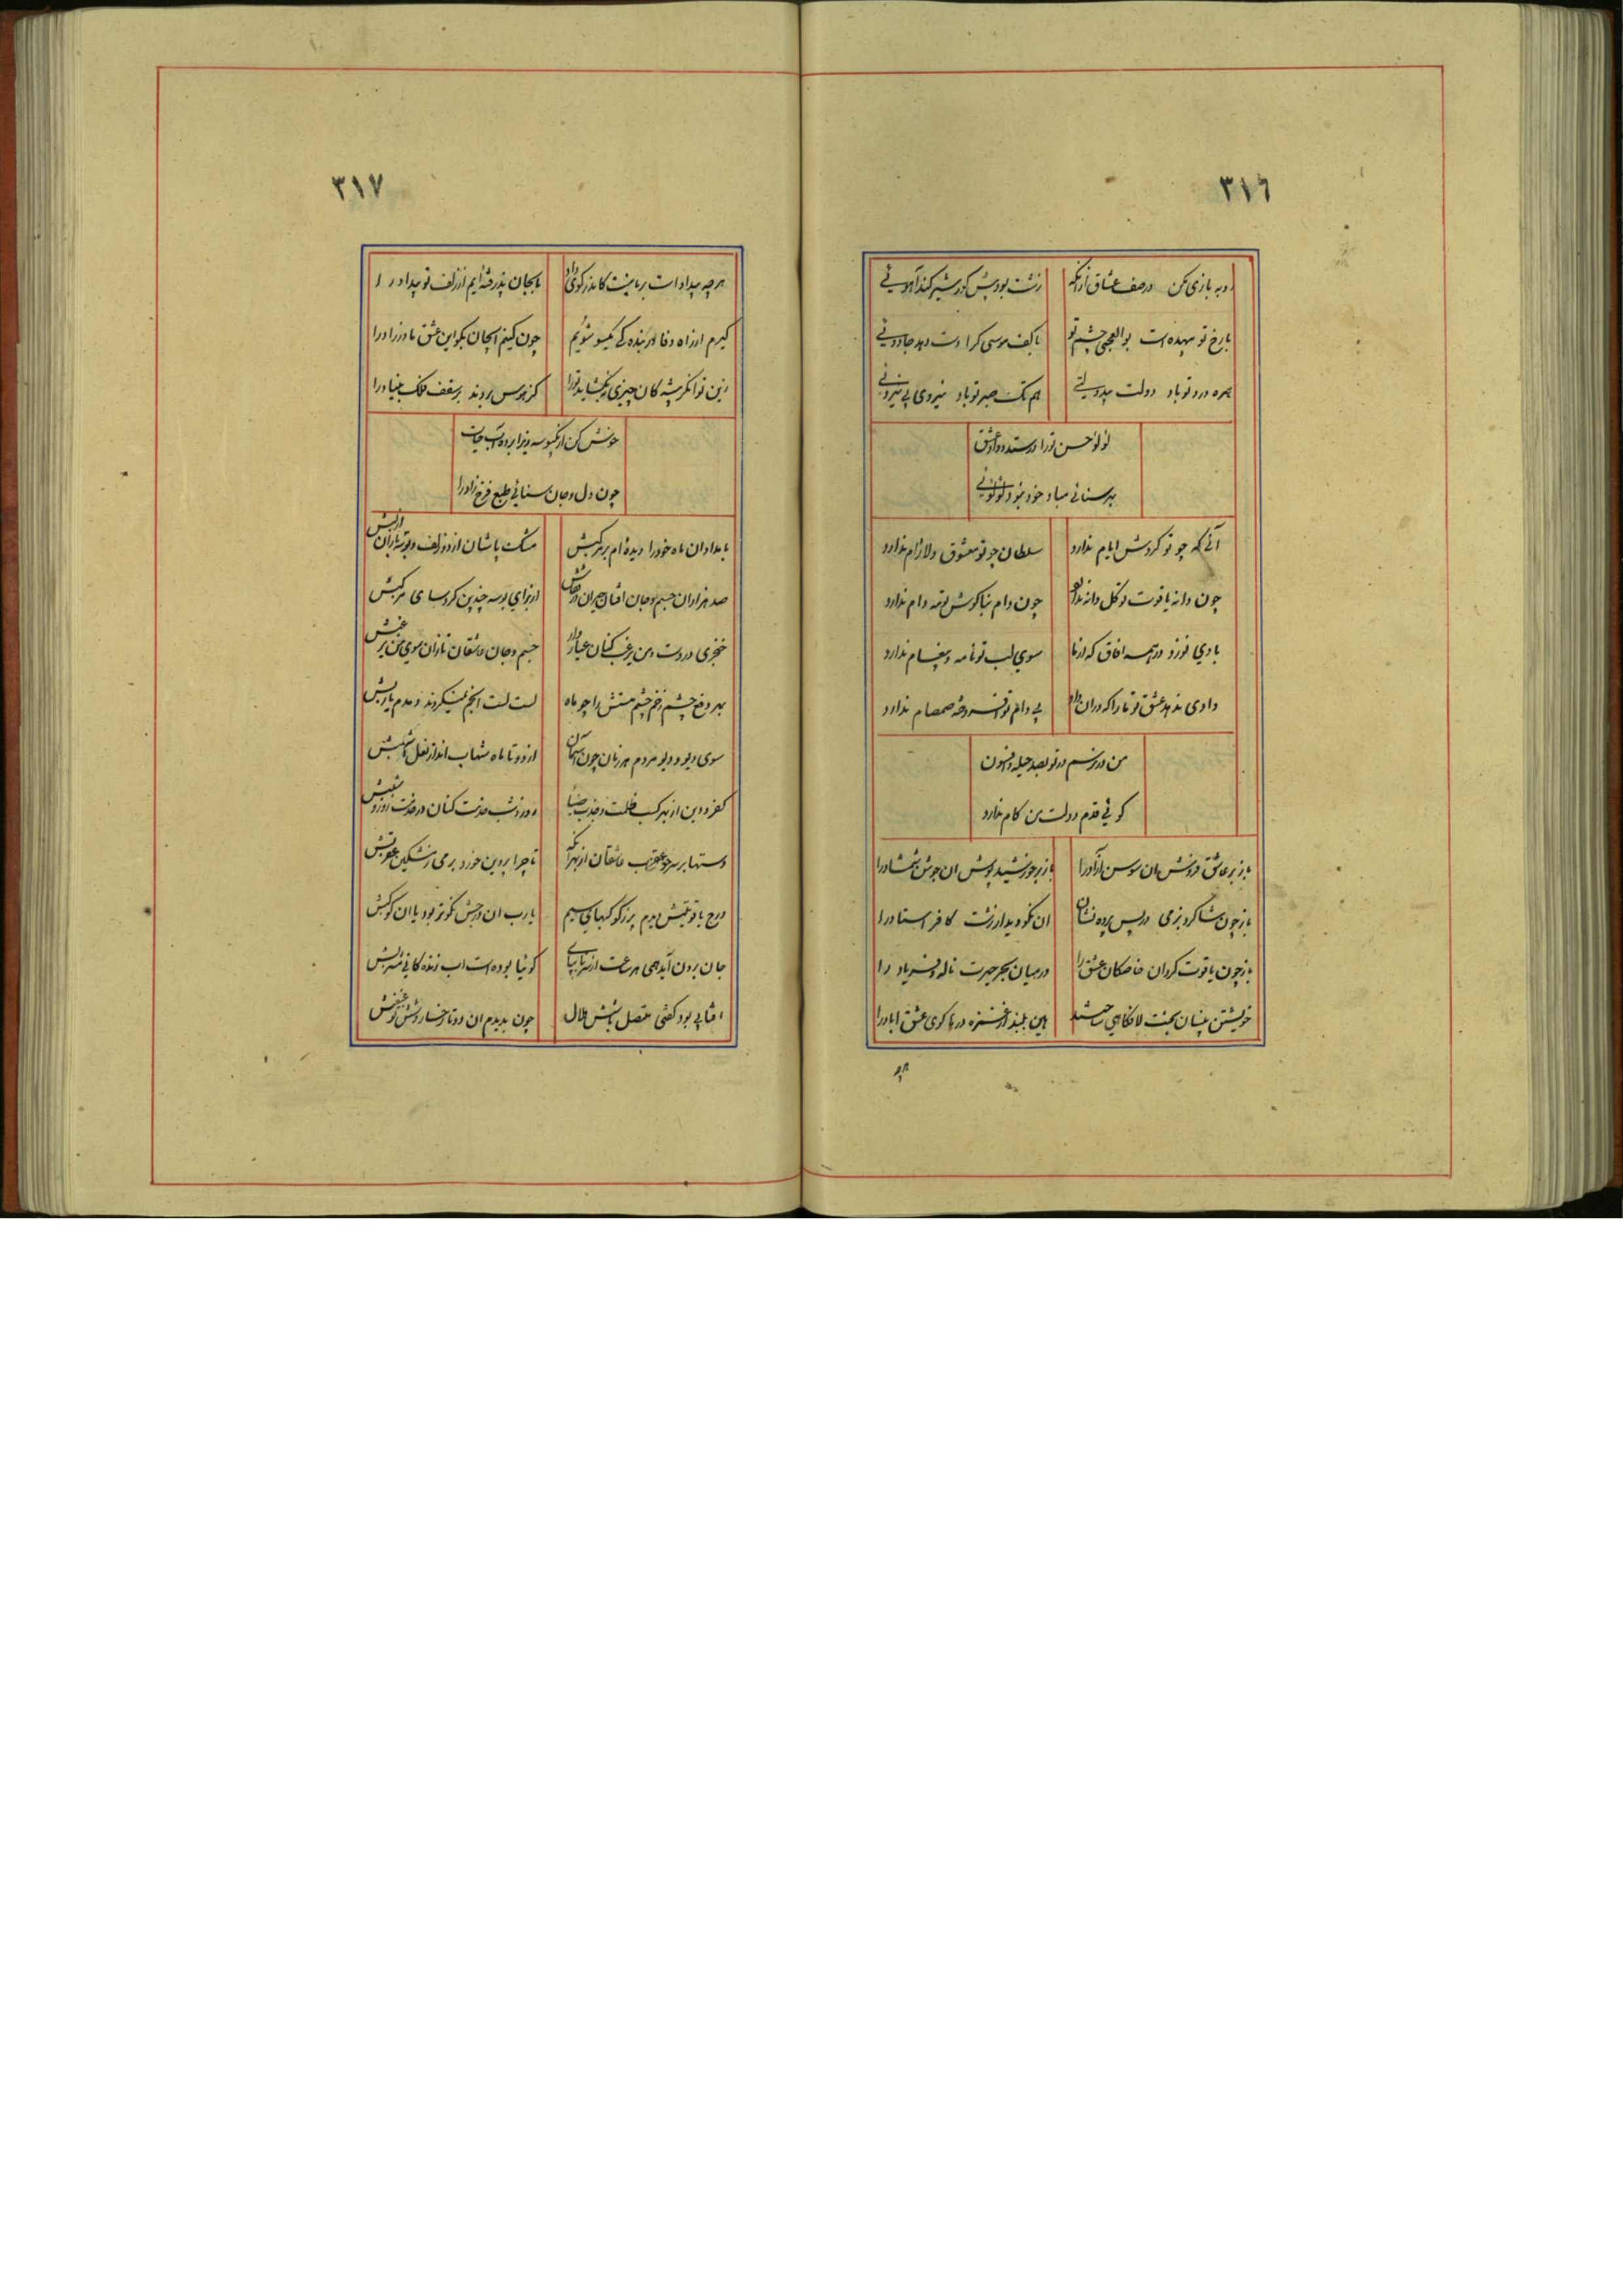 ٣١٦
روبه بازی مکن در صف عشاق ازآنکه زشت بود پیش گور شیر کند آهوئی
با رخ تو بیهده است بوالعجبی چشم تو با کف موسی کرا دست دهد جادوئی
بهره درد تو باد دولت بیدولتی هم تک صبر تو باد نیروی بی نیروئی
لولو حسن تورا در ستد و داد عشق
به ز سنائی مباد خود بنود لولوئی
آنی که چو تو گردش ایام ندارد سلطان چو تو معشوق دلارام ندارد
چون دانه یاقوت تو گل دانه ندارد چون دام بناگوش تو مه دام ندارد
بادی نوزد در همه افاق که از ما سوی لب تو نامه و پیغام ندارد
دادی ندهد عشق تو ما را که در آن داد بی دام تو افروخته صمصام ندارد
من در نرسم در تو بصد حیله و افسون
کوئی قدم دولت من کام ندارد
باز بر عاشق فروش ان سوسن آزاد را باز بر خورشید پوش ان جوشن شمشاد را
باز چون شاگرد بزمی در پس پرده نشان ان نکو دیدار زشت کافر استاد را
باز چون یاقوت گردان خاصگان عشق را در میان بحر حیرت ناله و فریاد را
خویشتن بینان بحسنت لافگاهی ساختند هین ببند از غمزه درها کوی عشق اباد را
هر چه
٣١٧
هر چه بیداد است بر ماریت کاندر کوی داد ما بجان پذرفته ایم از زلف تو بیداد را
گیرم از راه وفا و بنده گی یکسو شویم چون کنیم ایجان بگو این عشق مادرزاد را
زین توانگر پیشه کان چیزی نگشاید تورا کز هوس بردند بر سقف فلک بنیاد را
خوش کن از یکبوسه شیرین تر از آب حیات
چون دل و جان سنائی طبع فرخ زاد را
بامدادان ماه خود را دیده ام بر مرکبش مشک پاشان از دو زلف و بوسه باران از لبش
صد هزاران جسم و جان افشان و حیران از قفاش از برای بوسه چیدن گرد سمهای مرکبش
خنجری در دست و من یرغب کنان عیاروار جسم و جان عاشقان تازان سوی من یرغبش
بهر دفع چشم زخم چشم مستش را چو ماه لست لست انجم نمیکردند و مدم یاربش
سوی دیو و دیو مردم هر زمان چون آسمان از دو تا ماه شهاب انداز نعل اشهبش
کفر و دین از بهر کسب ظلمت و جذب ضیا روز و شب خدمت کنان در خدمت روز و شبش
دستها بر سر چو عقرب عاشقان از بهر آنکه تا چرا پروین خورد بر می مشکین عقربش
درج یاقوتیش دیدم پر ز گوکبهای سیم یارب ان درجش نکوتر بود یا ان کوکبش
جان برون آید همی هر ساعت از سر تا بپای گوئیا بوده است اب زنده گانی مشربش
افتابی بود گفتی متصل با شش هلال چون بدیدم ان دو تا رخسار و شش تو غبغبش